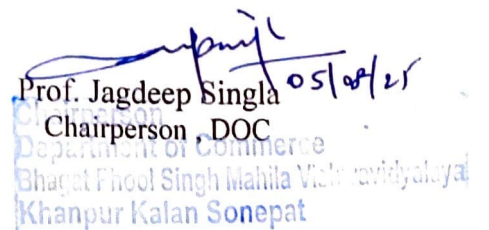 05/08/25
Prof. Jagdeep Singla
Chairperson , DOC
Chairperson
Department of Commerce
Bhagat Phool Singh Mahila
Khanpur Kalan Sonepat